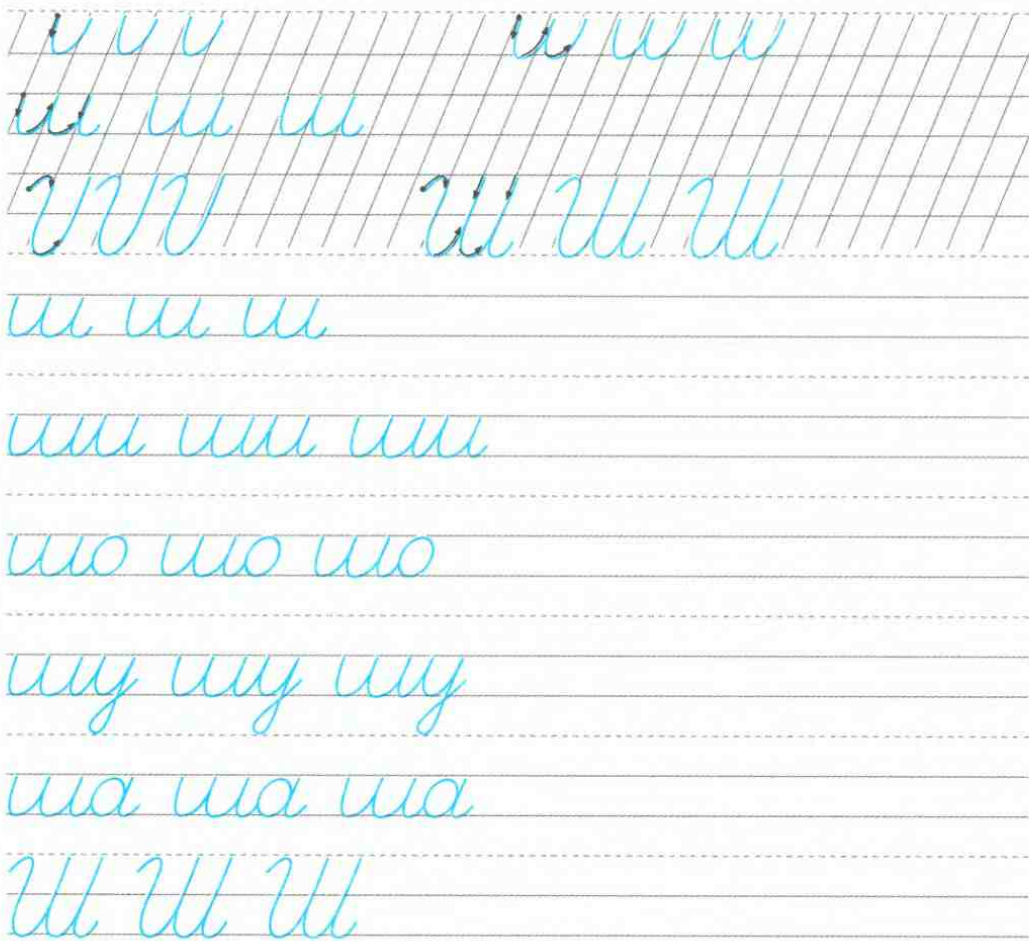 ш ш ш
Ш Ш Ш
ш ш ш
ши ши ши
шо шо шо
шу шу шу
ша ша ша
Ш Ш Ш